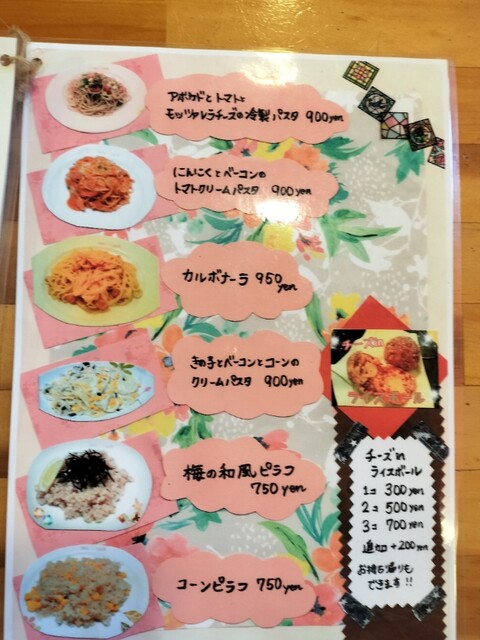 アボカドとトマトと
モッツァレラチーズの冷製パスタ 900yen
にんにくとベーコンの
トマトクリームパスタ 900yen
カルボナーラ 950
yen
きの子とベーコンとコーンの
クリームパスタ 900yen
梅の和風ピラフ
750yen
コーンピラフ 750yen
チーズin
ライスボール
チーズin
ライスボール
1コ 300yen
2コ 500yen
3コ 700yen
追加 +200yen
お持ち帰りも
できます!!